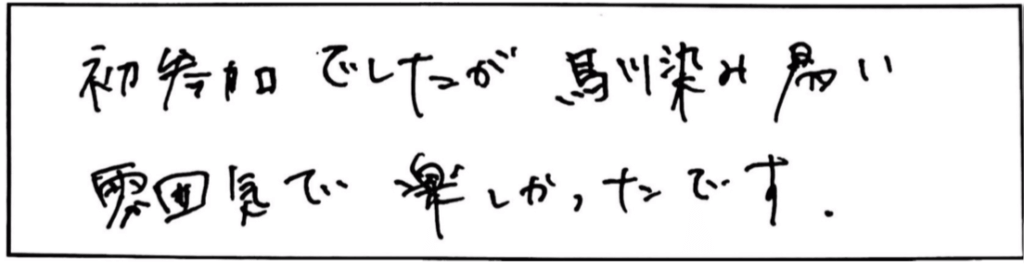 初参加でしたが馴染み易い
雰囲気で楽しかったです.